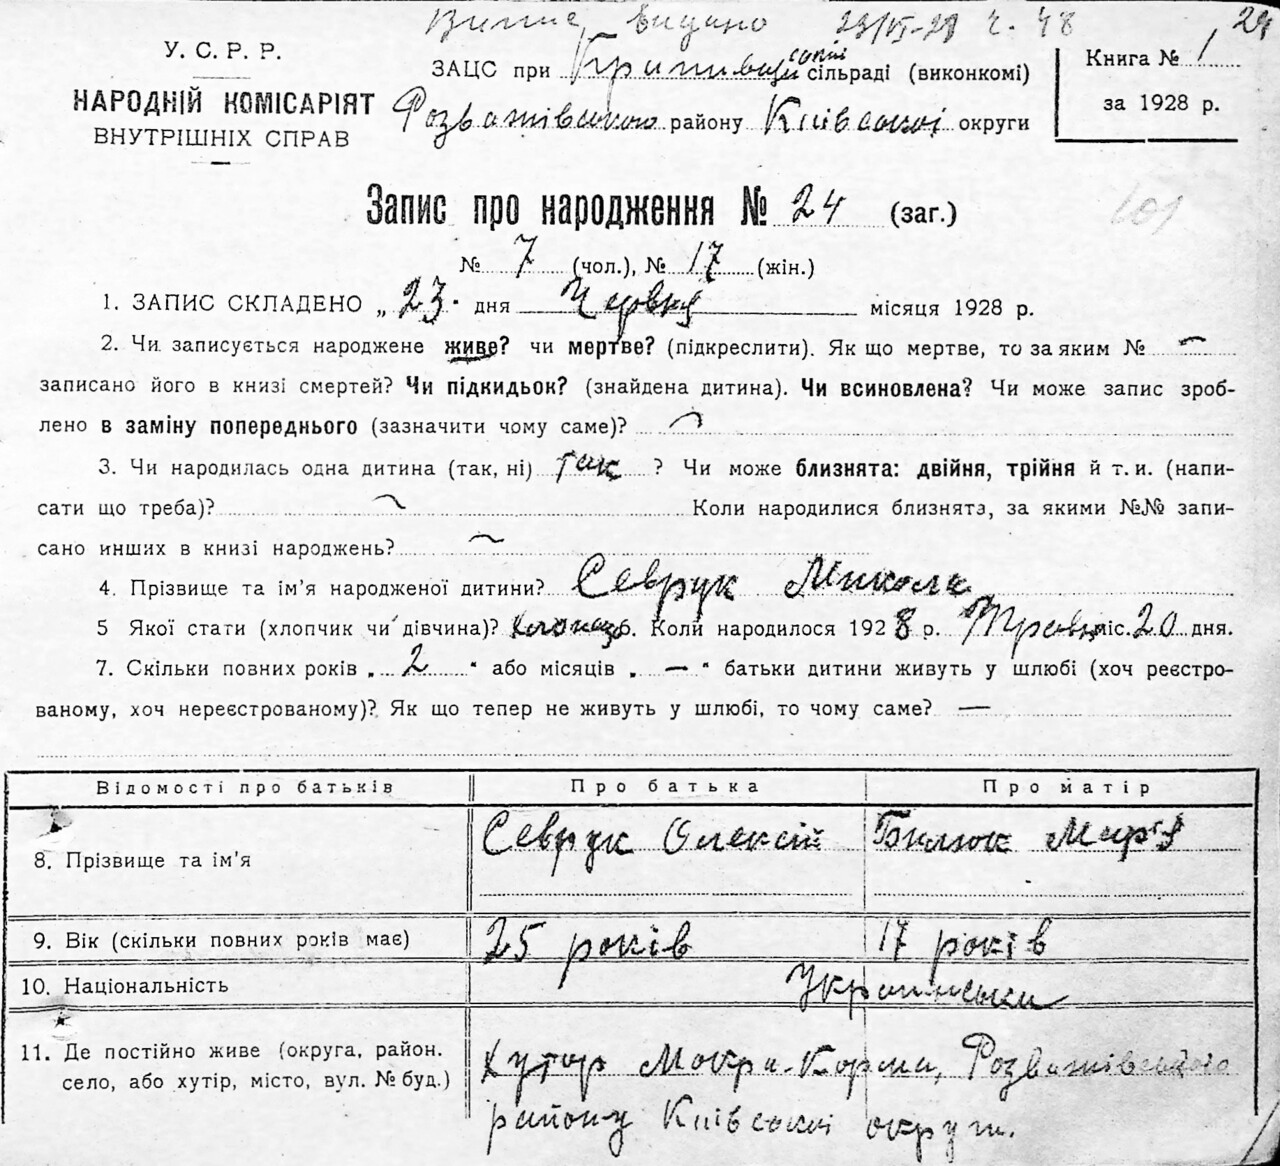 Випис видано 23/VI-28 ч. 48
24
У. С. Р. Р.
НАРОДНІЙ КОМІСАРІЯТ
ВНУТРІШНІХ СПРАВ
ЗАЦС при сільраді (виконкомі)
Розважівського району Київської округи
Книга № 1
за 1928 р.
Запис про народження № 24 (заг.)
101
№ 7 (чол.), № 17 (жін.)
1. ЗАПИС СКЛАДЕНО „ 23 " дня Червня місяця 1928 р.
2. Чи записується народжене живе? чи мертве? (підкреслити). Як що мертве, то за яким № —
записано його в книзі смертей? Чи підкидьок? (знайдена дитина). Чи всиновлена? Чи може запис зроб-
лено в заміну попереднього (зазначити чому саме)? —
3. Чи народилась одна дитина (так, ні) так ? Чи може близнята: двійня, трійня й т. и. (напи-
сати що треба)? — Коли народилися близнята, за якими №№ запи-
сано инших в книзі народжень? —
4. Прізвище та ім'я народженої дитини? Севрук Микола
5 Якої стати (хлопчик чи дівчина)? хлопець 6. Коли народилося 1928 р. Травн міс. 20 дня.
7. Скільки повних років „ 2 " або місяців „ — " батьки дитини живуть у шлюбі (хоч реєстро-
ваному, хоч нереєстрованому)? Як що тепер не живуть у шлюбі, то чому саме? —
Відомості про батьків Про батька Про матір
8. Прізвище та ім'я Севрук Олексій Билюк Марія
9. Вік (скільки повних років має) 25 років 17 років
10. Національність Українськи
11. Де постійно живе (округа, район. Хутор Мокра-Корма, Розважівського
село, або хутір, місто, вул. № буд.) району Київської округи.